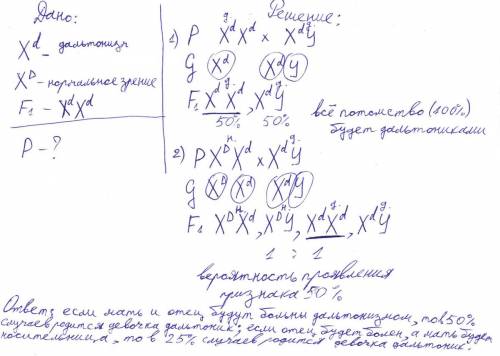 Дано:
X^d – дальтонизм
X^D – нормальное зрение
F₁ – X^d X^d
P – ?
Решение:
1) P X^d X^d × X^d Y
д. д.
G X^d X^d Y
д. д.
F₁ X^d X^d, X^d Y
50% 50%
всё потомство (100%)
будет дальтониками
н. д.
2) P X^D X^d × X^d Y
G X^D X^d X^d Y
н. н. д. д.
F₁ X^D X^d, X^D Y, X^d X^d, X^d Y
1 : 1
вероятность проявления
признака 50%
Ответ: если мать и отец будут больны дальтонизмом, то в 50%
случаев родится девочка дальтоник; если отец будет болен, а мать будет
носительница, то в 25% случаев родится девочка дальтоник.